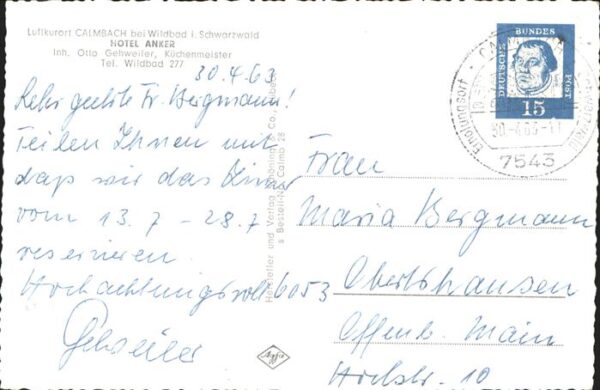 Luftkurort CALMBACH bei Wildbad i. Schwarzwald
HOTEL ANKER
Inh. Otto Gehweiler, Küchenmeister
Tel. Wildbad 277
30.4.63
Sehr geehrte Fr. Bergmann!
Teilen Ihnen mit
daß wir das Zimmer
vom 13.7 - 28.7
reservieren
Hochachtungsvoll
Gehweiler
Hersteller und Verlag Schöning & Co.,
s Bestell-Nr. Calmb 28
Agfa
DEUTSCHE
BUNDES
POST
15
30.-4.63-11
7543
Frau
Maria Bergmann
6053 Obertshausen
Offenb. Main
Hochstr. 10